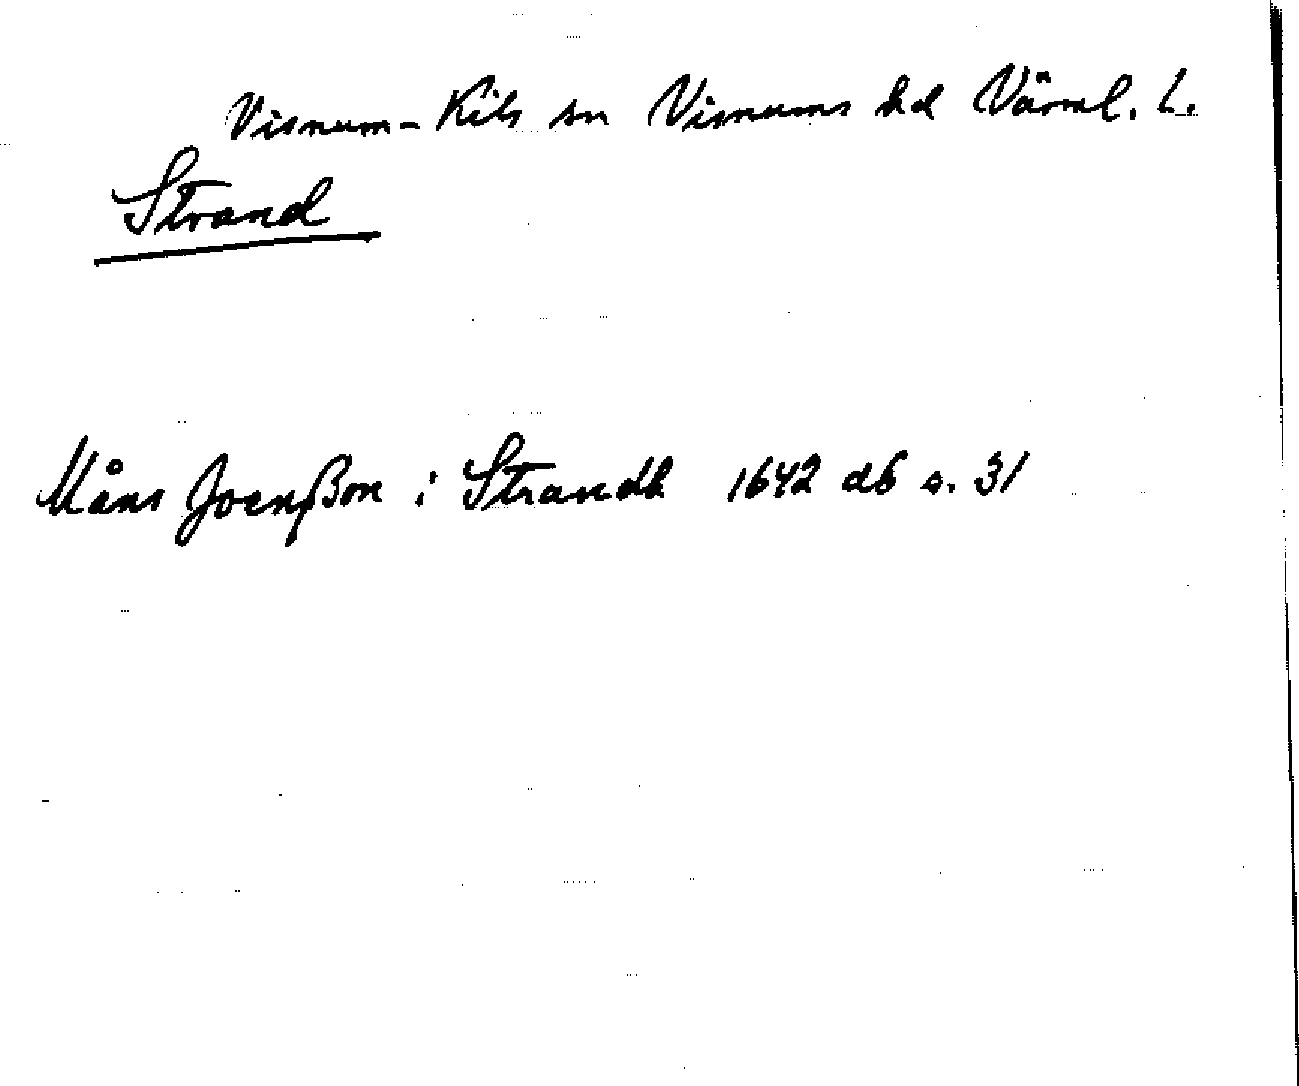 Visnum-Kils sn Visnums hd Värml. L.
Strand
Måns Joenßon i Strandh 1642 db s. 31